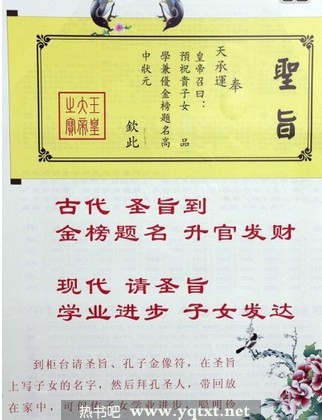 聖旨
奉
天承運
皇帝召曰：
預祝貴子女 品
學兼優金榜題名高
中狀元
欽此
王皇
大帝
之寶
古代 圣旨到
金榜题名 升官发财
现代 请圣旨
学业进步 子女发达
到柜台请圣旨、孔子金像符，在圣旨
上写子女的名字，然后拜孔圣人，带回放
在家中，可保佑子女学业进步，聪明伶
热书吧 www.yqtxt.net